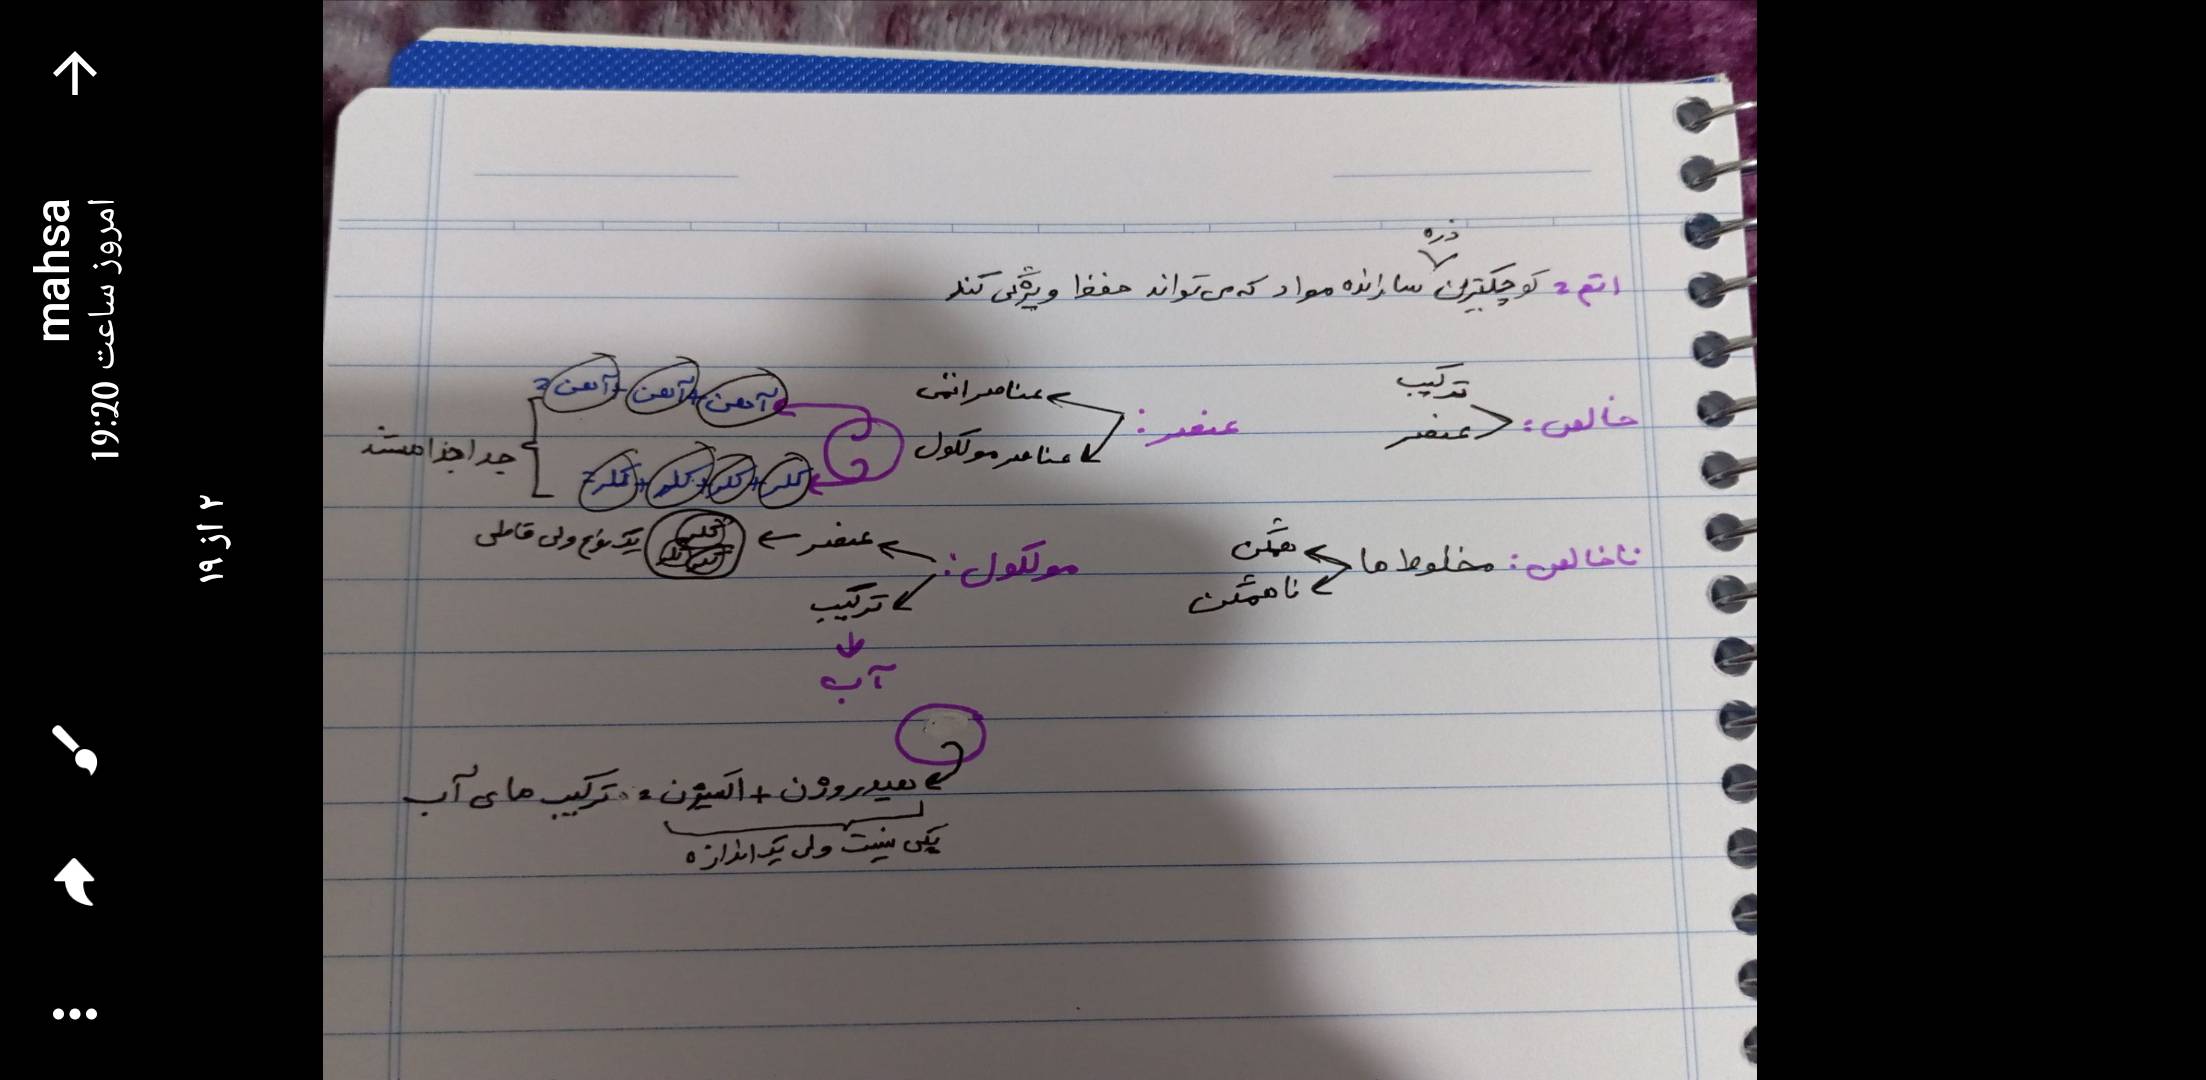 mahsa
امروز ساعت 19:20
۲ از ۱۹
ذره
اتم = کوچکترین سازنده مواد که می تواند حفظ ویژگی کند
خالص: ترکیب
عنصر
عنصر: عناصر اتمی
عناصر مولکول
آهن + آهن + آهن =
کلر + کلر + کلر + کلر =
جدا جدا هستند
ناخالص: مخلوط ها
همگن
ناهمگن
مولکول: عنصر ← کلر کلر کلر یک نوع ولی قاطی
ترکیب
آب
هیدروژن + اکسیژن = ترکیب های آب
یکی نیست ولی یک اندازه